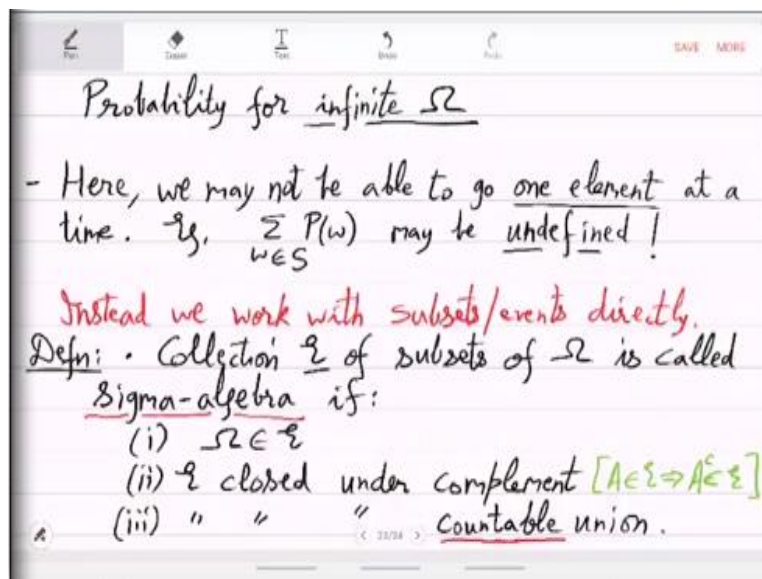 Pen Eraser Text Undo Redo SAVE MORE
Probability for infinite Ω
- Here, we may not be able to go one element at a
time. Eg. Σ P(w) may be undefined !
w∈S
Instead we work with subsets/events directly.
Defn: • Collection ℰ of subsets of Ω is called
sigma-algebra if:
(i) Ω ∈ ℰ
(ii) ℰ closed under complement [A∈ℰ ⇒ Aᶜ∈ℰ]
(iii) " " " countable union.
< 23/24 >